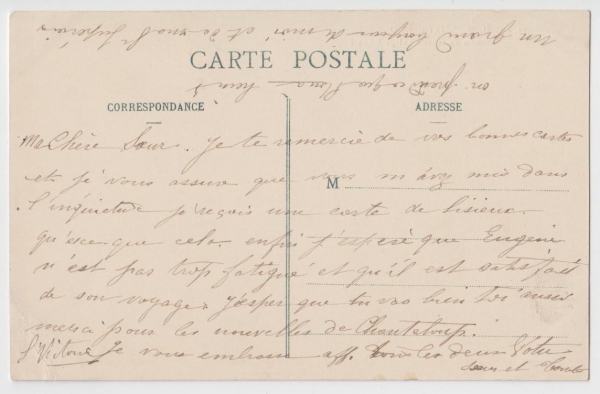 un grand bonjour de moi et de ma
CARTE POSTALE
CORRESPONDANCE
ADRESSE
M
Ma Chère Sœur. Je te remercie de vos bonnes cartes
et je vous assure que vous m'avez mis dans
l'inquietude je reçois une carte de Lisieux
qu'esce que cela. enfin j'espere que Eugène
n'est pas trop fatigué et qu'il est satisfait
de son voyage. J'esper que tu vas bien toi aussi
merci pour les nouvelles de Chanteloup.
Je vous embrasse aff. tous les deux Votre
sœur et